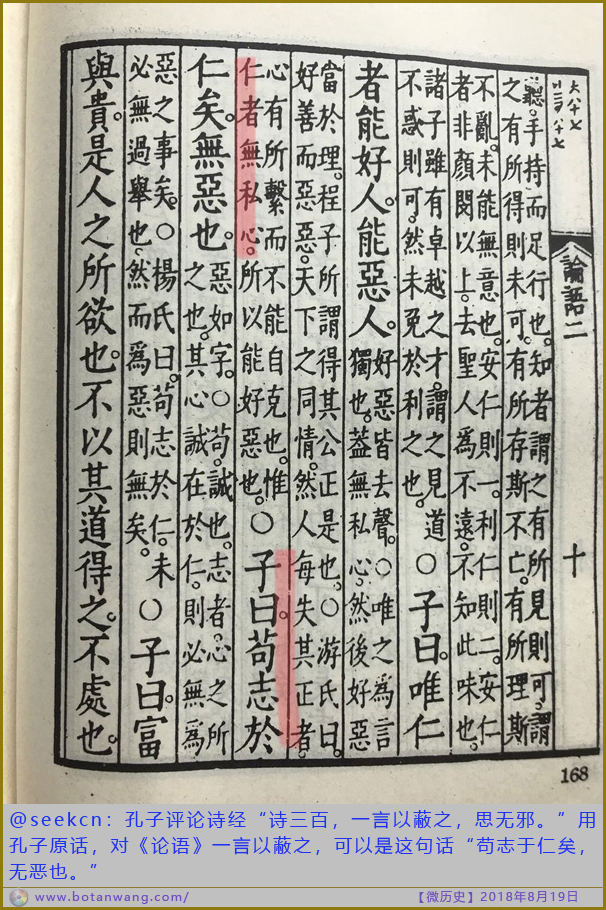 論語二
十
聽。手持而足行也。知者謂之有所見則可。謂
之有所得則未可。有所存斯不亡。有所理斯
不亂。未能無意也。安仁則一。利仁則二。安仁
者非顏閔以上。去聖人爲不遠。不知此味也。
諸子雖有卓越之才。謂之見道
不惑則可。然未免於利之也。
○子曰。唯仁
者能好人。能惡人。
好惡皆去聲。○唯之爲言
獨也。葢無私心。然後好惡
當於理。程子所謂得其公正是也。○游氏曰。
好善而惡惡。天下之同情。然人每失其正者。
心有所繫而不能自克也。惟
仁者無私心。所以能好惡也。
○子曰。苟志於
仁矣。無惡也。
惡如字。○苟。誠也。志者。心之所
之也。其心誠在於仁。則必無爲
惡之事矣。○楊氏曰。苟志於仁。未
必無過舉也。然而爲惡則無矣。
○子曰。富
與貴。是人之所欲也。不以其道得之。不處也。
168
@seekcn：孔子评论诗经“诗三百，一言以蔽之，思无邪。”用
孔子原话，对《论语》一言以蔽之，可以是这句话“苟志于仁矣，
无恶也。”
www.botanwang.com/
【微历史】2018年8月19日